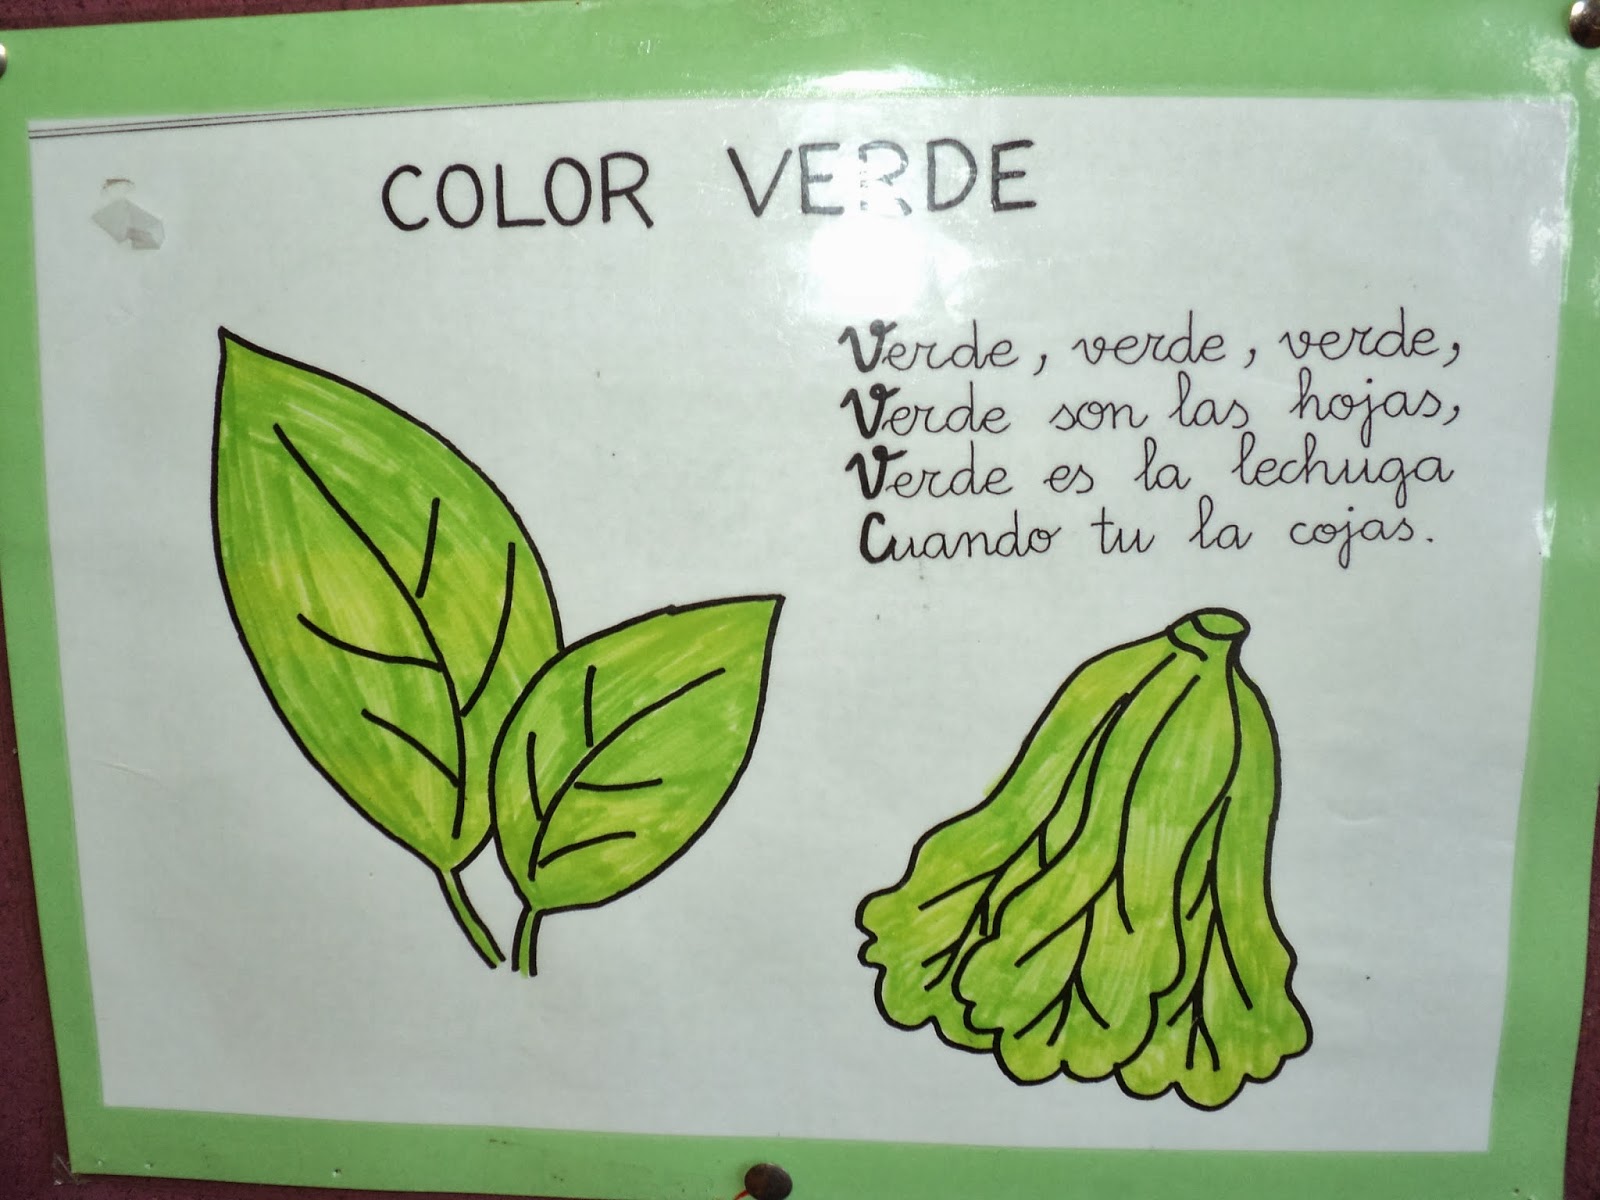 COLOR VERDE
Verde, verde, verde,
Verde son las hojas,
Verde es la lechuga
Cuando tu la cojas.